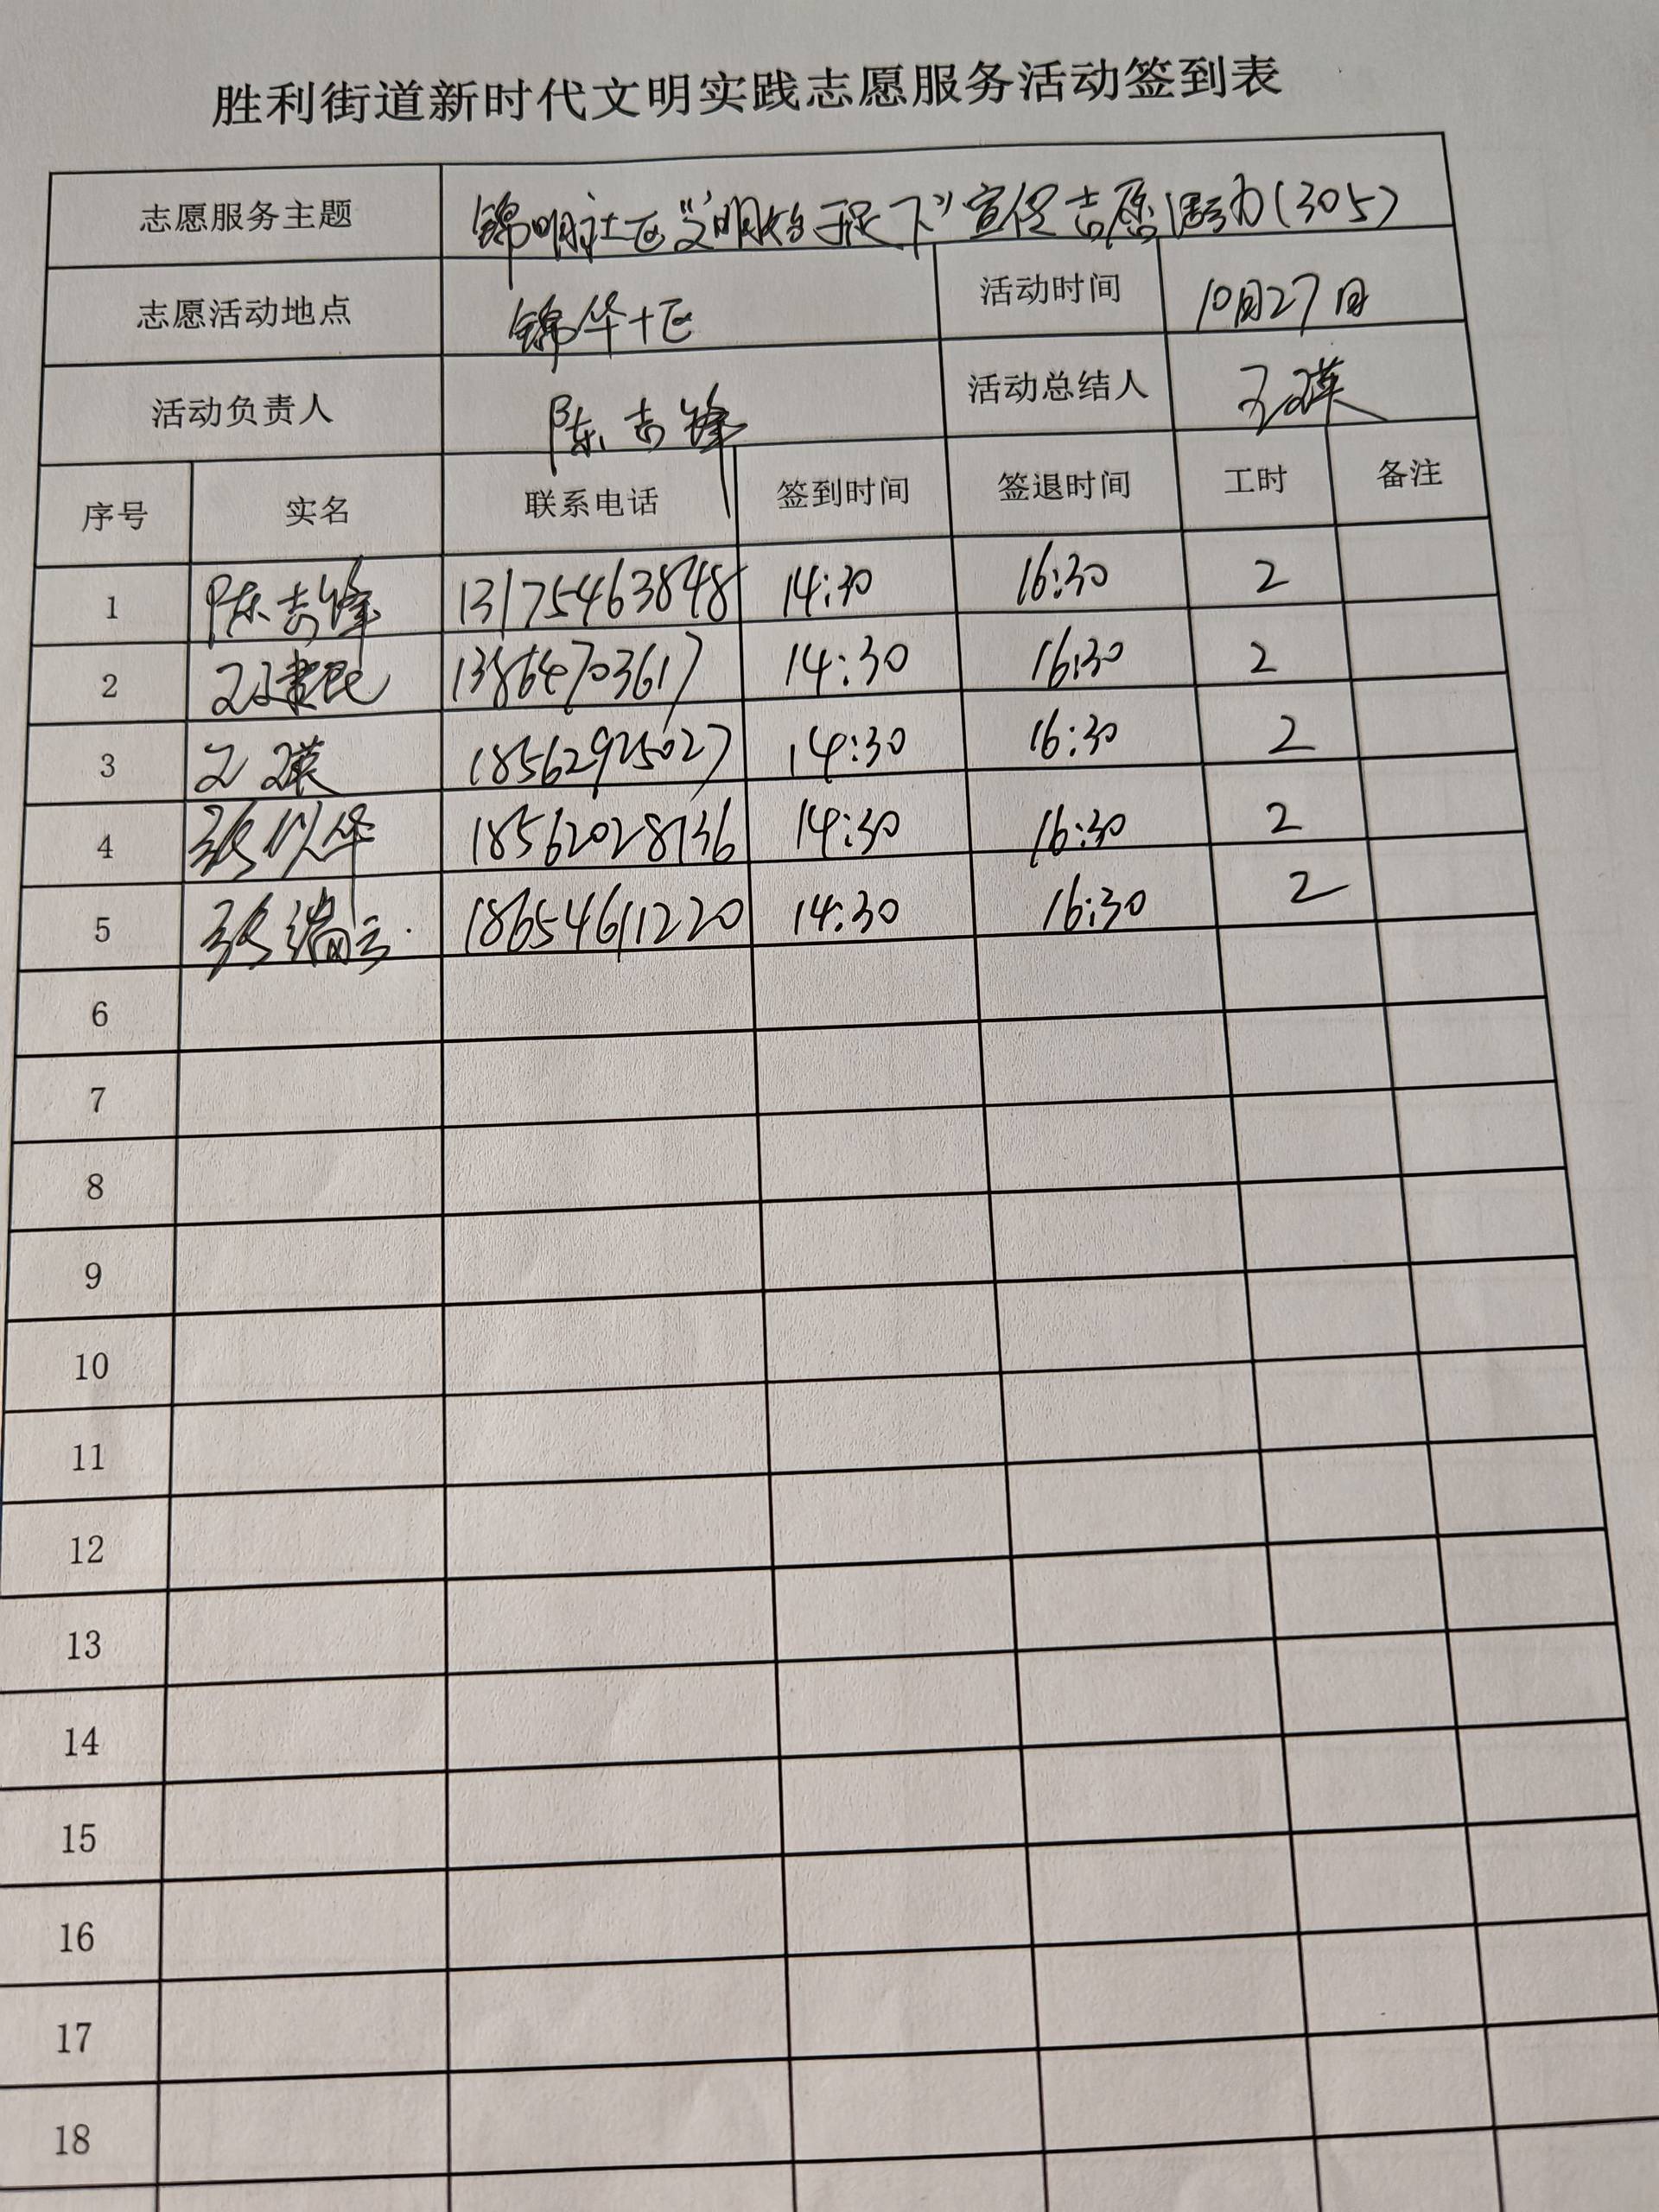 胜利街道新时代文明实践志愿服务活动签到表
志愿服务主题 锦明社区“文明始于足下”宣促志愿活动(305)
志愿活动地点 锦华十区 活动时间 10月27日
活动负责人 陈志锋 活动总结人 王瑛
序号 实名 联系电话 签到时间 签退时间 工时 备注
1 陈志锋 13175463848 14:30 16:30 2
2 王建民 13864703617 14:30 16:30 2
3 王瑛 18562925027 14:30 16:30 2
4 张以华 18562028136 14:30 16:30 2
5 张端云 18654611220 14:30 16:30 2
6
7
8
9
10
11
12
13
14
15
16
17
18